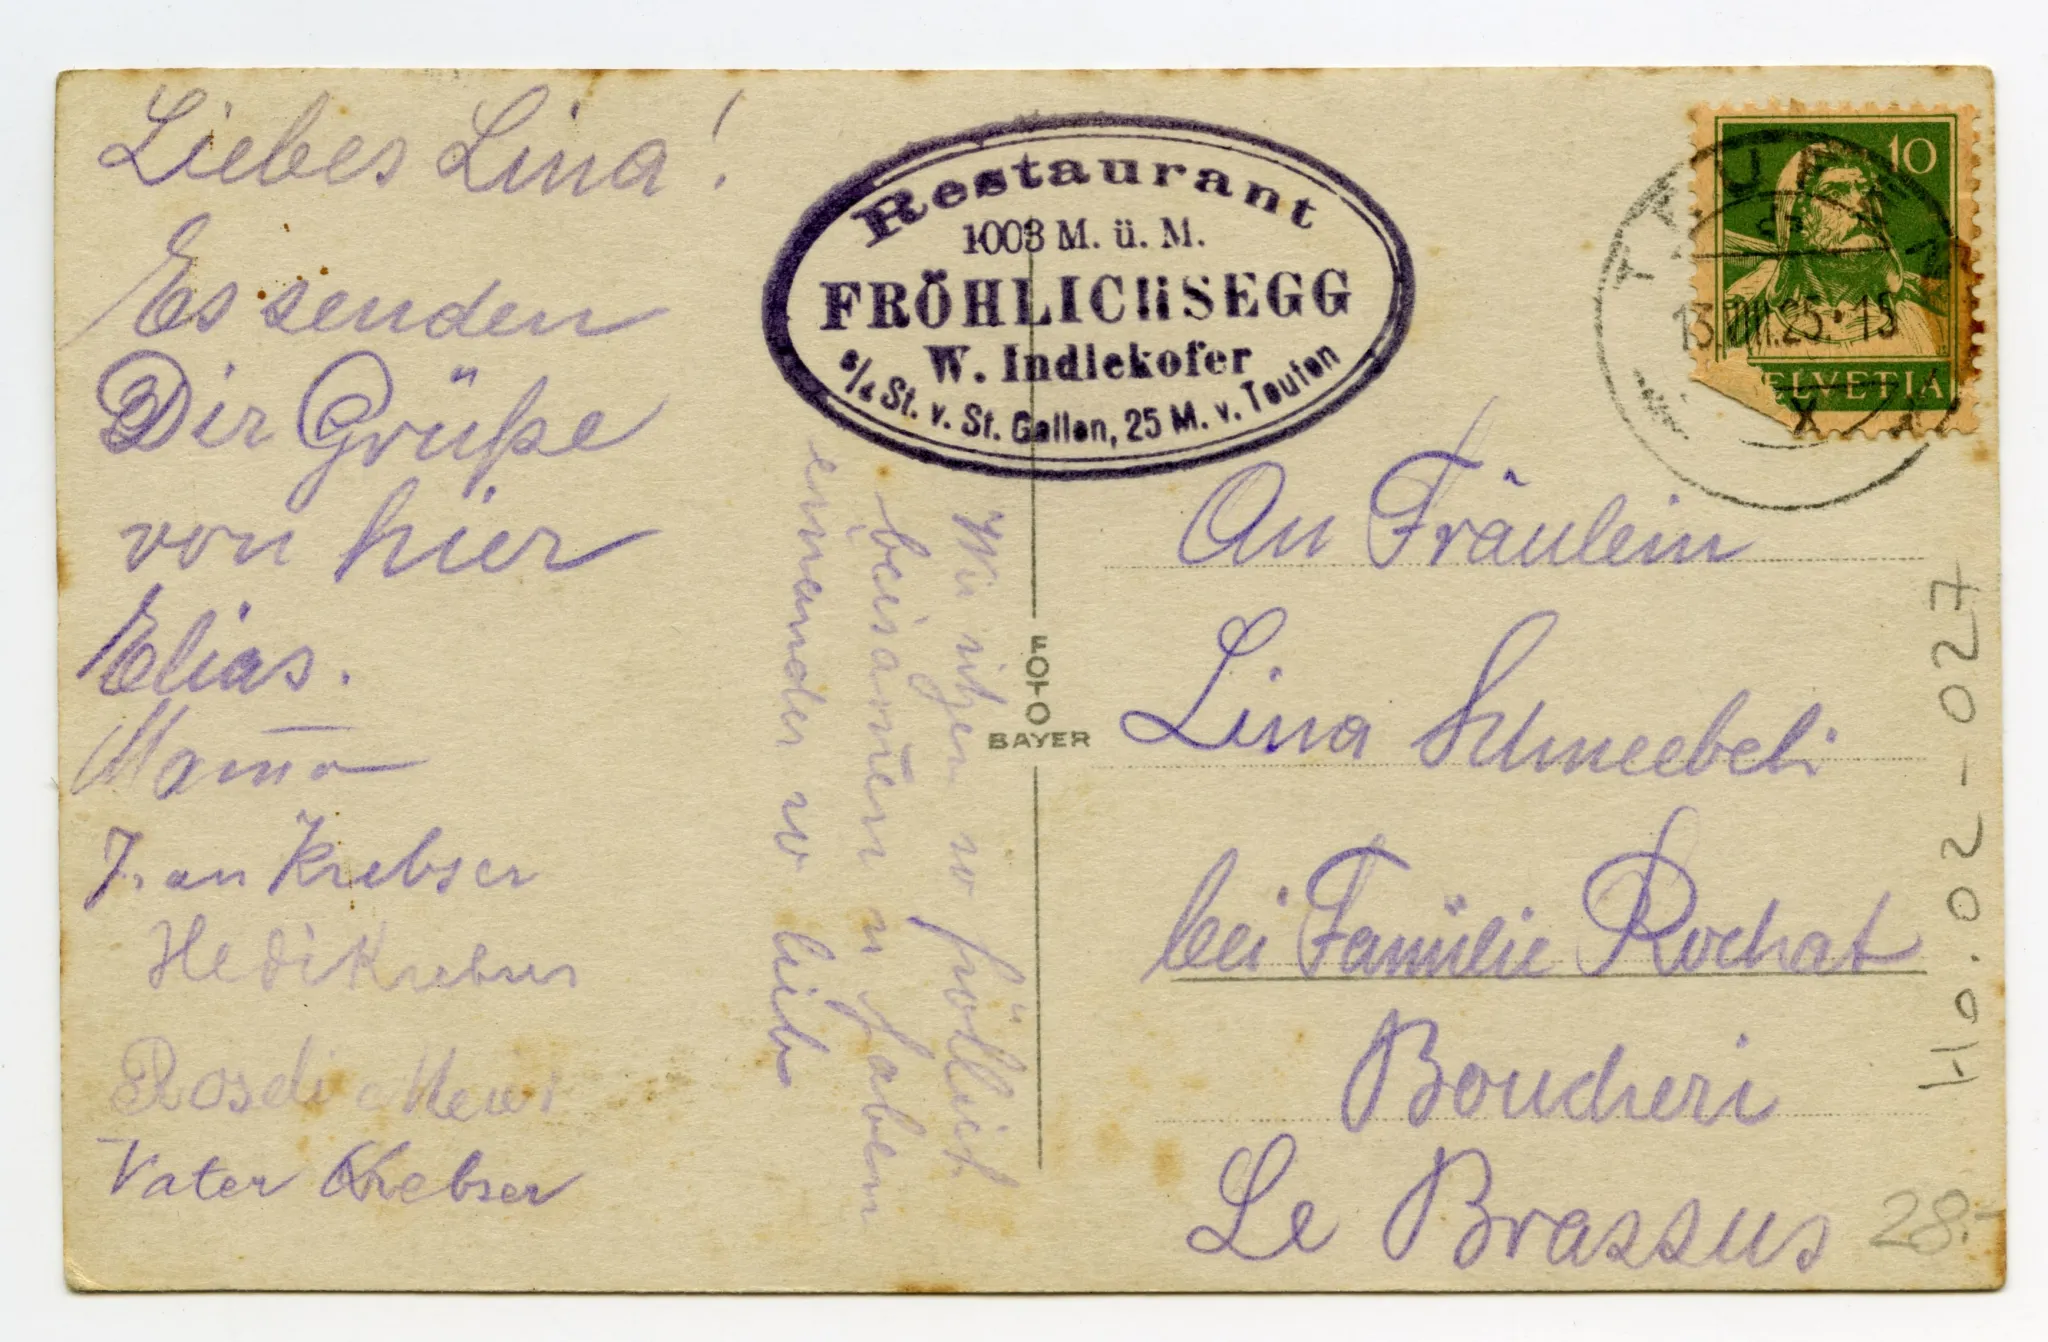 Liebes Lina!
Es senden
Dir Grüße
von hier
Elias.
Mamma
Frau Krebser
Hedi Krebser
Rosdi
Vater Krebser
Wir sitzen so fröhlich
beisammen u haben
einander so lieb
Restaurant
1003 M. ü. M.
FRÖHLICHSEGG
W. Indlekofer
St. v. St. Gallen, 25 M. v. Teufen
FOTO
BAYER
TEUFEN
13.VIII.25.-15
10
HELVETIA
An Fräulein
Lina Schneebeli
bei Familie Rochat
Boucheri
Le Brassus
Ho.02-027
28.-